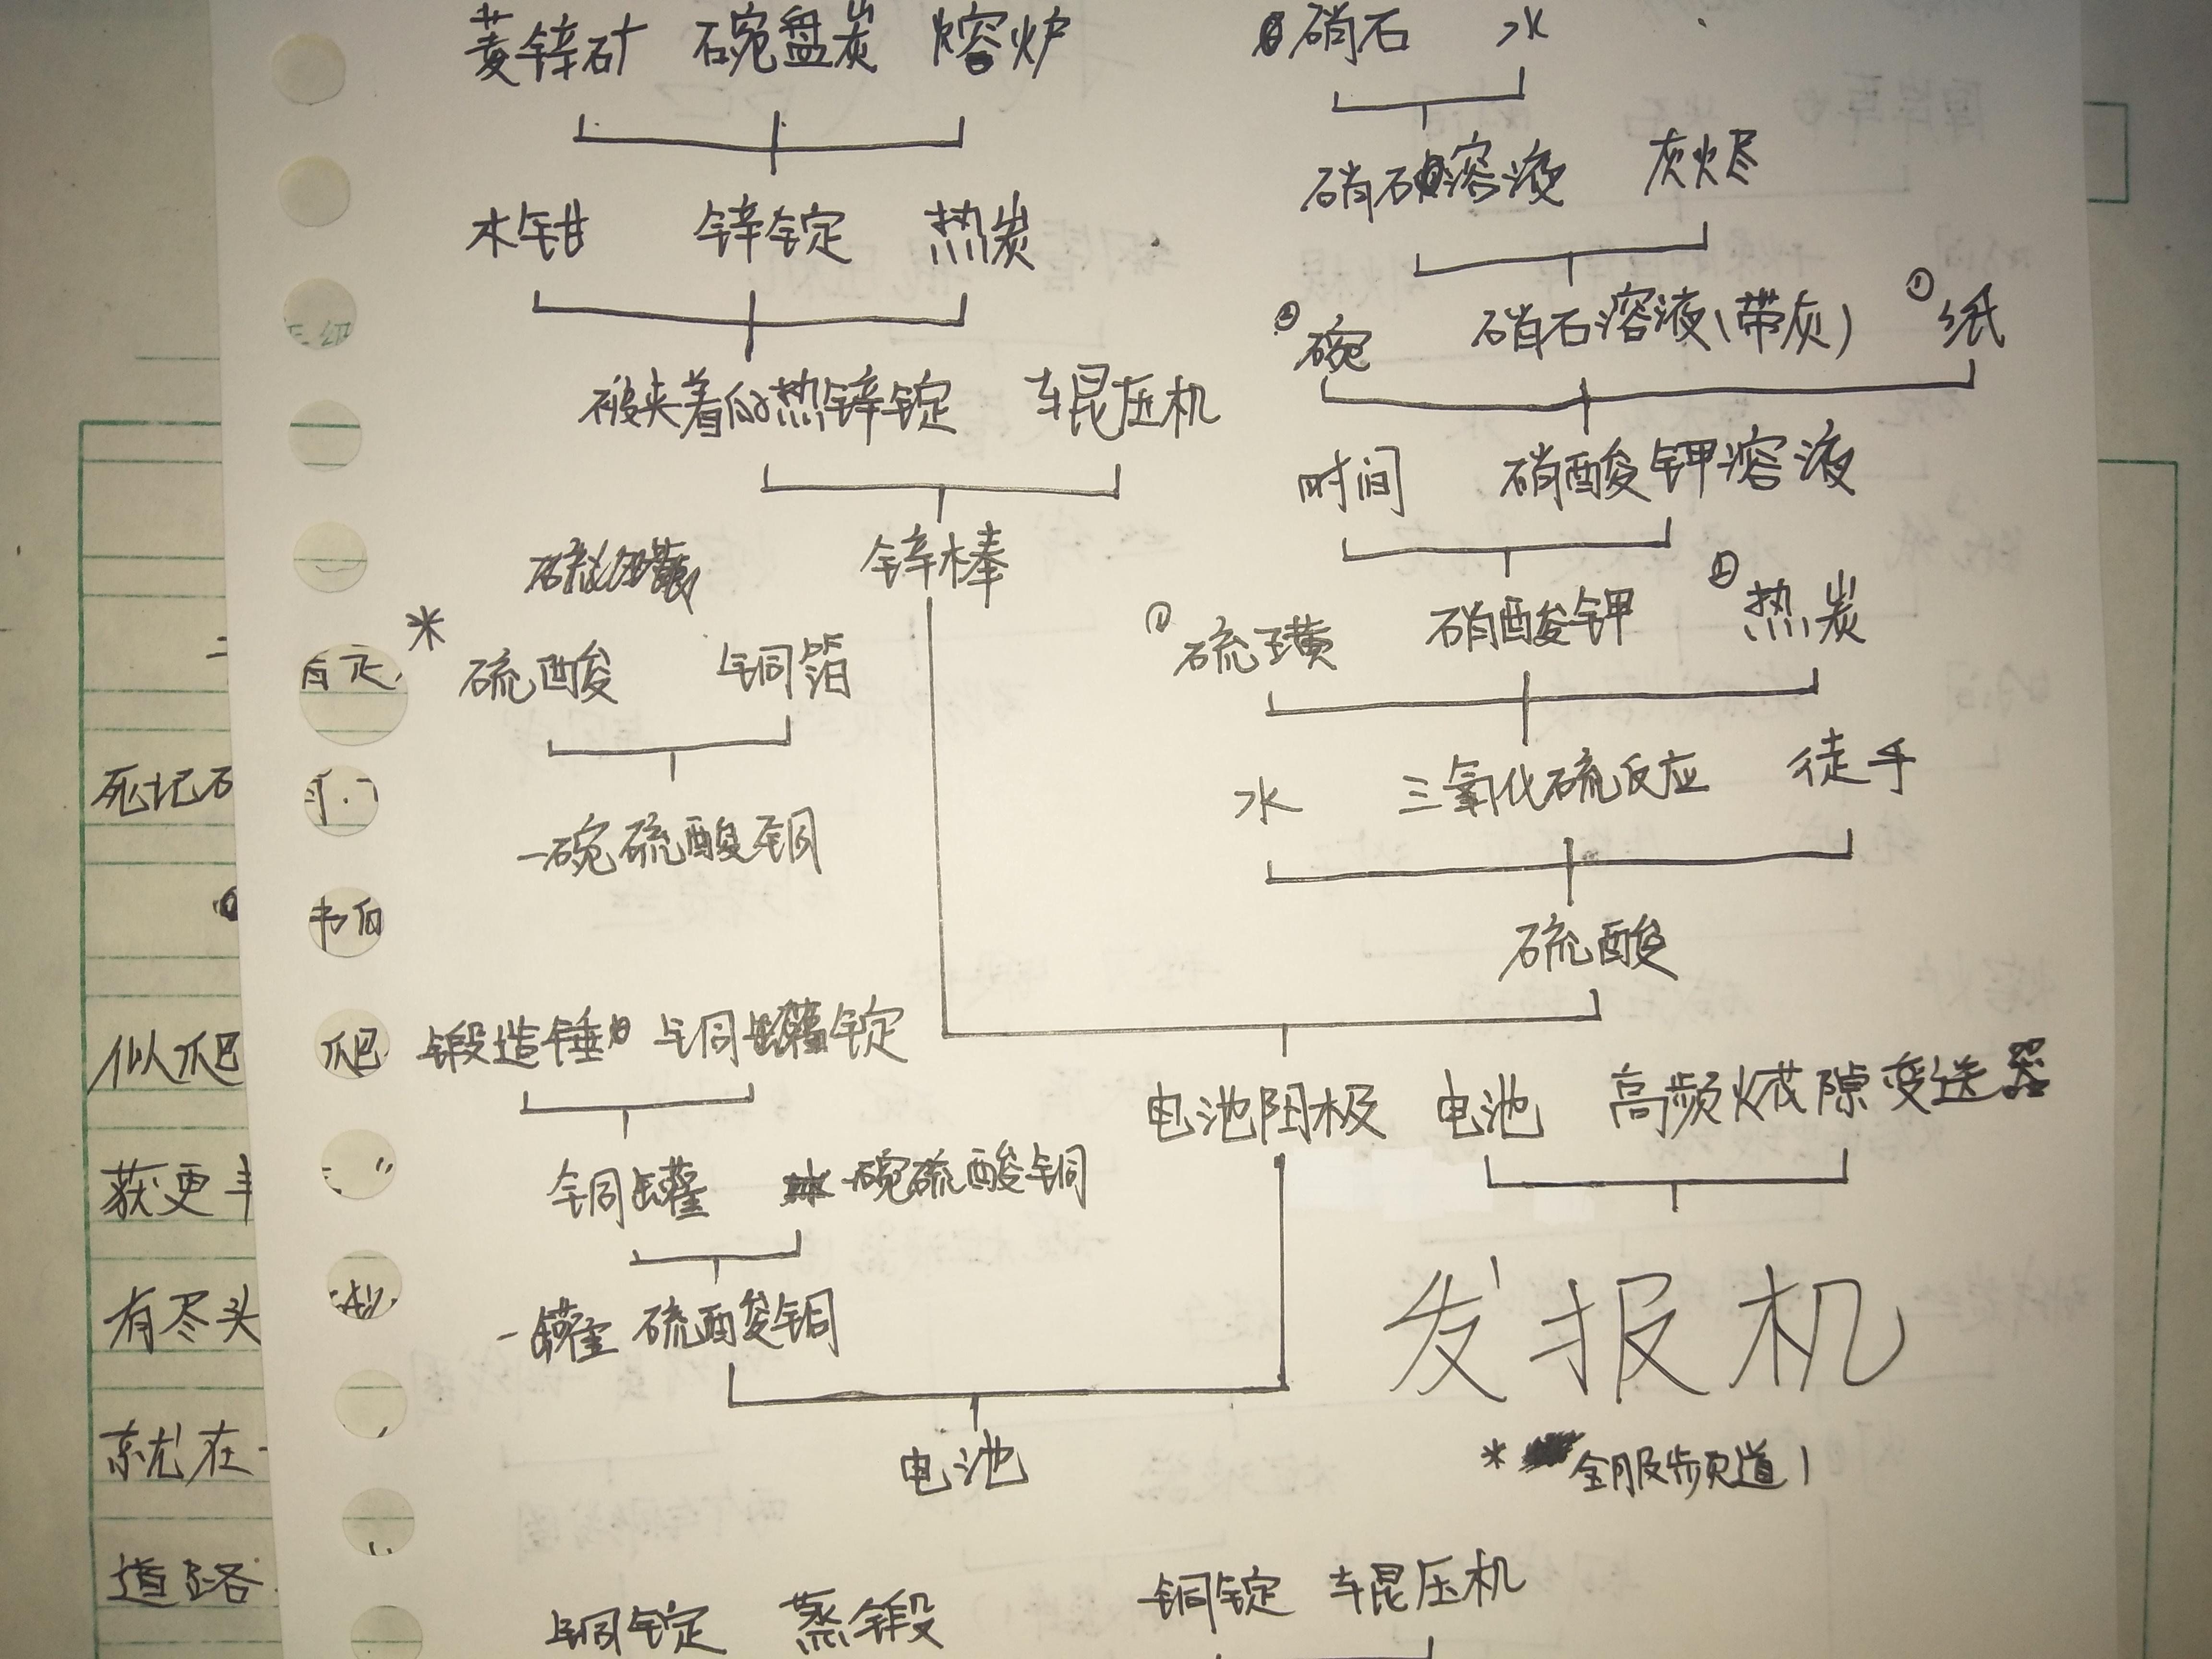 菱锌矿 碗盘炭 熔炉
硝石 水
硝石溶液 灰烬
木钳 锌锭 热炭
② 碗 硝石溶液(带灰) ① 纸
被夹着的热锌锭 辊压机
时间 硝酸钾溶液
锌棒
① 硫磺 硝酸钾 ② 热炭
* 硫酸 铜箔
水 三氧化硫反应 徒手
一碗硫酸铜
硫酸
锻造锤 铜锭
电池阴极 电池 高频火花隙变送器
铜罐 一碗硫酸铜
发报机
一罐硫酸铜
电池
* 全服频道1
铜锭 蒸锻
铜锭 辊压机
死记
似爬
获更
有尽头
就在
道路